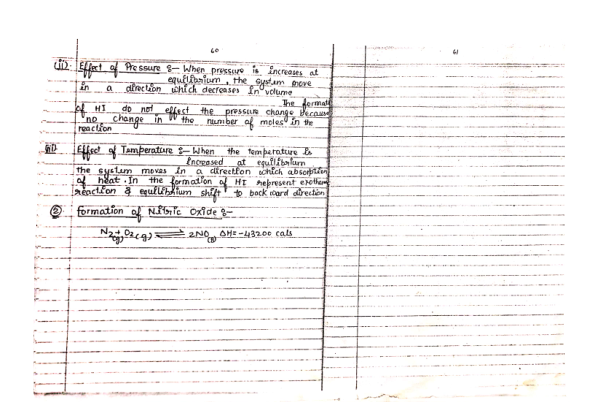 60
61
(ii). Effect of Pressure :- When pressure is increases at
equilibrium, the system move
in a direction which decreases in volume
The format
of HI do not effect the pressure change because
no change in the number of moles in the
reaction
(iii) Effect of Temperature :- When the temperature is
increased at equilibrium
the system moves in a direction which absorption
of heat. In the formation of HI represent exother
reaction & equilibrium shift to back ward direction
② formation of Nitric Oxide :-
N2(g) + O2(g) ⇌ 2NO(g) ΔH = -43200 cals